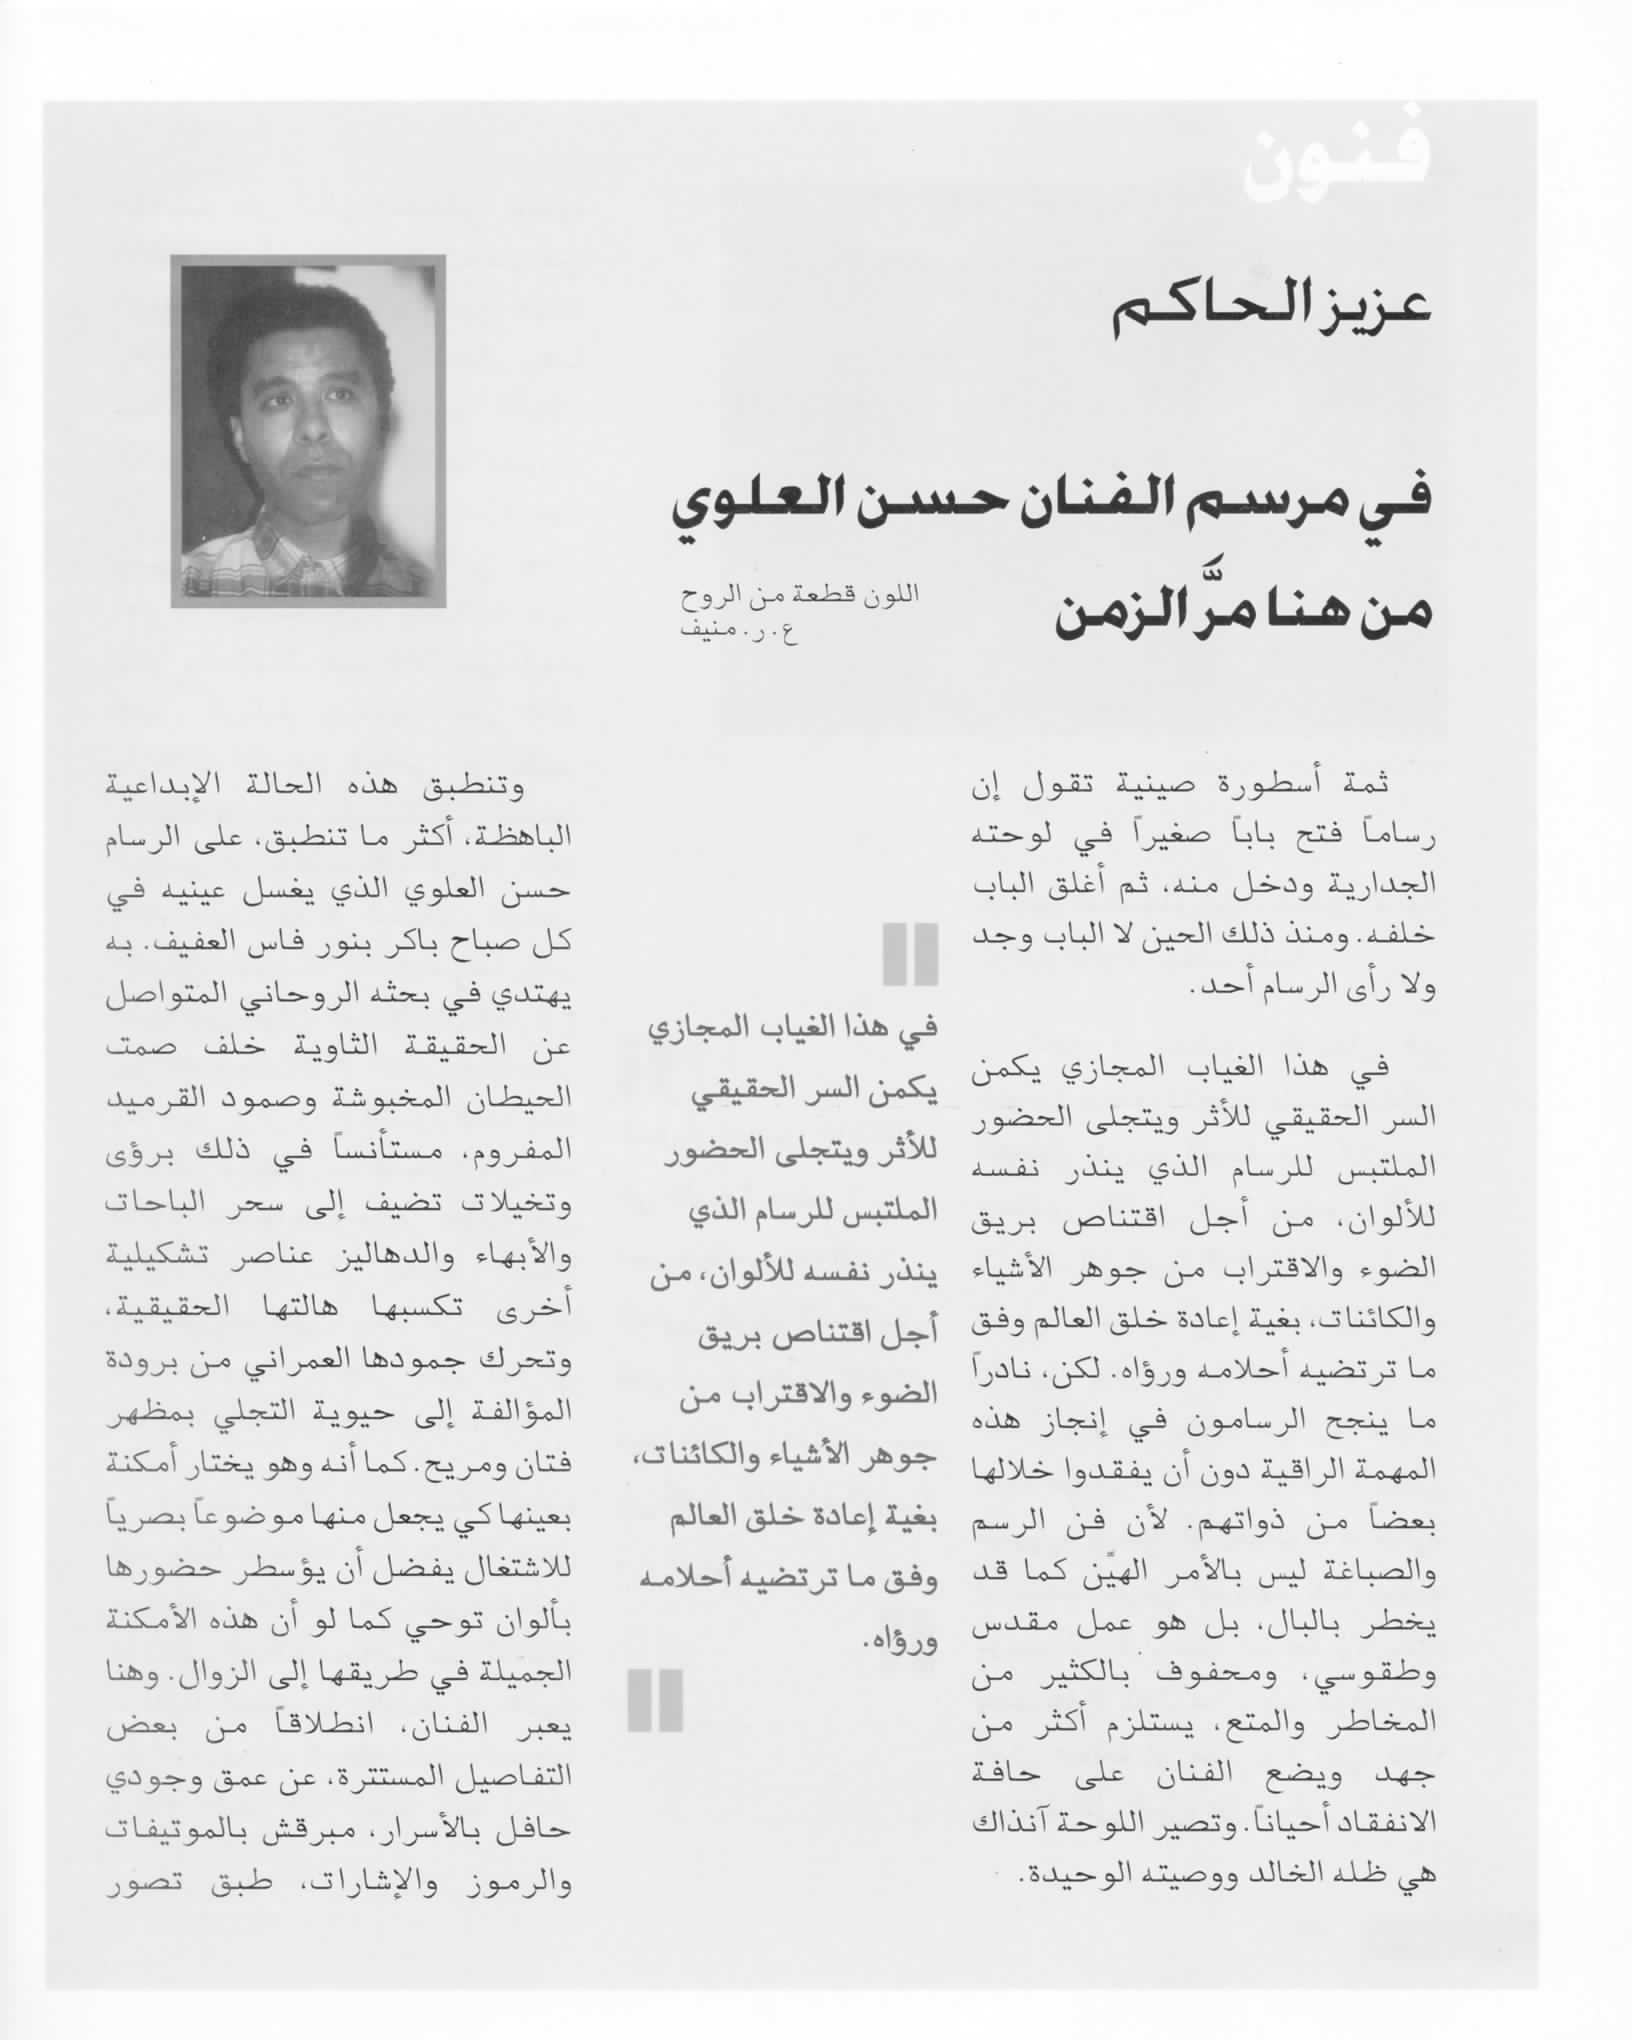 فنون
عزيز الحاكم
في مرسم الفنان حسن العلوي
من هنا مرَّ الزمن
اللون قطعة من الروح
ع. ر. منيف
ثمة أسطورة صينية تقول إن
رساماً فتح باباً صغيراً في لوحته
الجدارية ودخل منه، ثم أغلق الباب
خلفه. ومنذ ذلك الحين لا الباب وجد
ولا رأى الرسام أحد.
في هذا الغياب المجازي يكمن
السر الحقيقي للأثر ويتجلى الحضور
الملتبس للرسام الذي ينذر نفسه
للألوان، من أجل اقتناص بريق
الضوء والاقتراب من جوهر الأشياء
والكائنات، بغية إعادة خلق العالم وفق
ما ترتضيه أحلامه ورؤاه. لكن، نادراً
ما ينجح الرسامون في إنجاز هذه
المهمة الراقية دون أن يفقدوا خلالها
بعضاً من ذواتهم. لأن فن الرسم
والصباغة ليس بالأمر الهيّن كما قد
يخطر بالبال، بل هو عمل مقدس
وطقوسي، ومحفوف بالكثير من
المخاطر والمتع، يستلزم أكثر من
جهد ويضع الفنان على حافة
الانفقاد أحياناً. وتصير اللوحة آنذاك
هي ظله الخالد ووصيته الوحيدة.
في هذا الغياب المجازي
يكمن السر الحقيقي
للأثر ويتجلى الحضور
الملتبس للرسام الذي
ينذر نفسه للألوان، من
أجل اقتناص بريق
الضوء والاقتراب من
جوهر الأشياء والكائنات،
بغية إعادة خلق العالم
وفق ما ترتضيه أحلامه
ورؤاه.
وتنطبق هذه الحالة الإبداعية
الباهظة، أكثر ما تنطبق، على الرسام
حسن العلوي الذي يغسل عينيه في
كل صباح باكر بنور فاس العفيف. به
يهتدي في بحثه الروحاني المتواصل
عن الحقيقة الثاوية خلف صمت
الحيطان المخبوشة وصمود القرميد
المفروم، مستأنساً في ذلك برؤى
وتخيلات تضيف إلى سحر الباحات
والأبهاء والدهاليز عناصر تشكيلية
أخرى تكسبها هالتها الحقيقية،
وتحرك جمودها العمراني من برودة
المؤالفة إلى حيوية التجلي بمظهر
فتان ومريح. كما أنه وهو يختار أمكنة
بعينها كي يجعل منها موضوعاً بصرياً
للاشتغال يفضل أن يؤسطر حضورها
بألوان توحي كما لو أن هذه الأمكنة
الجميلة في طريقها إلى الزوال. وهنا
يعبر الفنان، انطلاقاً من بعض
التفاصيل المستترة، عن عمق وجودي
حافل بالأسرار، مبرقش بالموتيفات
والرموز والإشارات، طبق تصور